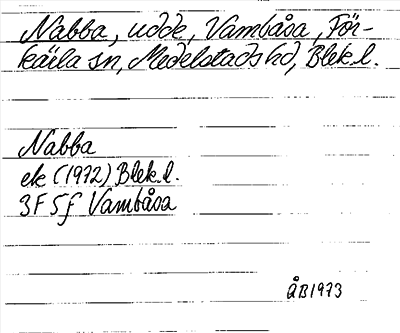 Nabba, udde, Vambåsa, För-
kärla sn, Medelstads hd, Blek.l.
Nabba
ek (1972) Blek.l.
3F 5f Vambåsa
ÅB1973